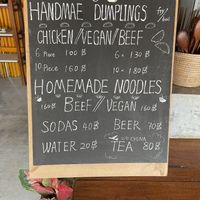 HANDMAE DUMPLINGS
CHICKEN/VEGAN/BEEF
6 Piece 100฿ 6x 130฿
10 Piece 160฿ 10x 180฿
HOMEMADE NOODLES
160฿ BEEF/VEGAN 160฿
SODAS 40฿ BEER 70฿
WATER 20฿ TEA 80฿